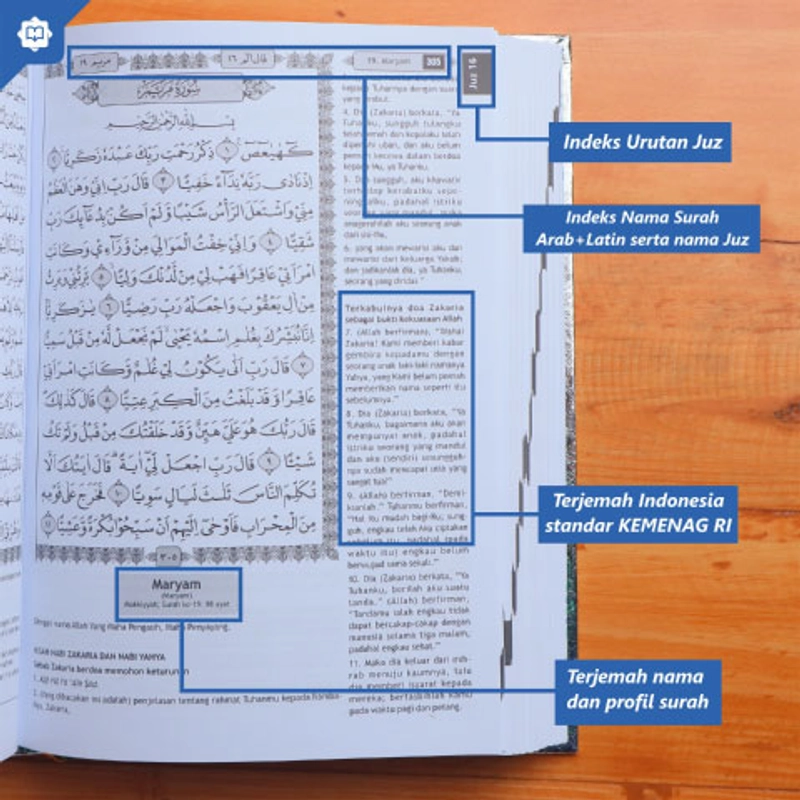 مريم ١٩
قال الم ١٦
19. Maryam
305
Juz 16
سُوْرَةُ مَرْيَمَ
بِسْمِ اللّٰهِ الرَّحْمٰنِ الرَّحِيْمِ
كۤهٰيٰعۤصۤ ۝١ ذِكْرُ رَحْمَتِ رَبِّكَ عَبْدَهٗ زَكَرِيَّا ۝٢
اِذْ نَادٰى رَبَّهٗ نِدَاۤءً خَفِيًّا ۝٣ قَالَ رَبِّ اِنِّيْ وَهَنَ الْعَظْمُ
مِنِّيْ وَاشْتَعَلَ الرَّأْسُ شَيْبًا وَّلَمْ اَكُنْۢ بِدُعَاۤىِٕكَ رَبِّ
شَقِيًّا ۝٤ وَاِنِّيْ خِفْتُ الْمَوَالِيَ مِنْ وَّرَاۤءِيْ وَكَانَتِ
امْرَاَتِيْ عَاقِرًا فَهَبْ لِيْ مِنْ لَّدُنْكَ وَلِيًّا ۝٥ يَّرِثُنِيْ وَيَرِثُ
مِنْ اٰلِ يَعْقُوْبَ وَاجْعَلْهُ رَبِّ رَضِيًّا ۝٦ يٰزَكَرِيَّآ
اِنَّا نُبَشِّرُكَ بِغُلٰمِ ۨاسْمُهٗ يَحْيٰى لَمْ نَجْعَلْ لَّهٗ مِنْ قَبْلُ سَمِيًّا
۝٧ قَالَ رَبِّ اَنّٰى يَكُوْنُ لِيْ غُلٰمٌ وَّكَانَتِ امْرَاَتِيْ
عَاقِرًا وَّقَدْ بَلَغْتُ مِنَ الْكِبَرِ عِتِيًّا ۝٨ قَالَ كَذٰلِكَ
قَالَ رَبُّكَ هُوَ عَلَيَّ هَيِّنٌ وَّقَدْ خَلَقْتُكَ مِنْ قَبْلُ وَلَمْ تَكُ
شَيْـًٔا ۝٩ قَالَ رَبِّ اجْعَلْ لِّيْٓ اٰيَةً ۗقَالَ اٰيَتُكَ اَلَّا
تُكَلِّمَ النَّاسَ ثَلٰثَ لَيَالٍ سَوِيًّا ۝١٠ فَخَرَجَ عَلٰى قَوْمِهٖ
مِنَ الْمِحْرَابِ فَاَوْحٰٓى اِلَيْهِمْ اَنْ سَبِّحُوْا بُكْرَةً وَّعَشِيًّا ۝١١
٣٠٥
Maryam
(Maryam)
Makkiyyah; Surah ke-19: 98 ayat
Dengan nama Allah Yang Maha Pengasih, Maha Penyayang.
KISAH NABI ZAKARIA DAN NABI YAHYA
Sebab Zakaria berdoa memohon keturunan
2. (Yang dibacakan ini adalah) penjelasan tentang rahmat Tuhanmu kepada hamba-
Nya, Zakaria,
kepada Tuhannya dengan suara
yang lembut.
4. Dia (Zakaria) berkata, "Ya
Tuhanku, sungguh tulangku
telah lemah dan kepalaku telah
dipenuhi uban, dan aku belum
pernah kecewa dalam berdoa
kepada-Mu, ya Tuhanku.
5. Dan sungguh, aku khawatir
terhadap kerabatku sepe-
ninggalku, padahal istriku
seorang yang mandul, maka
anugerahilah aku seorang anak
dari sisi-Mu,
6. yang akan mewarisi aku dan
mewarisi dari keluarga Yakub;
dan jadikanlah dia, ya Tuhanku,
seorang yang diridai."
Terkabulnya doa Zakaria
sebagai bukti kekuasaan Allah
7. (Allah berfirman), "Wahai
Zakaria! Kami memberi kabar
gembira kepadamu dengan
seorang anak laki-laki namanya
Yahya, yang Kami belum pernah
memberikan nama seperti itu
sebelumnya."
8. Dia (Zakaria) berkata, "Ya
Tuhanku, bagaimana aku akan
mempunyai anak, padahal
istriku seorang yang mandul
dan aku (sendiri) sesungguh-
nya sudah mencapai usia yang
sangat tua?"
9. (Allah) berfirman, "Demi-
kianlah." Tuhanmu berfirman,
"Hal itu mudah bagi-Ku; sung-
guh, engkau telah Aku ciptakan
sebelum itu, padahal (pada
waktu itu) engkau belum
berwujud sama sekali."
10. Dia (Zakaria) berkata, "Ya
Tuhanku, berilah aku suatu
tanda." (Allah) berfirman,
"Tandamu ialah engkau tidak
dapat bercakap-cakap dengan
manusia selama tiga malam,
padahal engkau sehat."
11. Maka dia keluar dari mih-
rab menuju kaumnya, lalu
dia memberi isyarat kepada
mereka; bertasbihlah kamu
pada waktu pagi dan petang.
Indeks Urutan Juz
Indeks Nama Surah
Arab+Latin serta nama Juz
Terjemah Indonesia
standar KEMENAG RI
Terjemah nama
dan profil surah